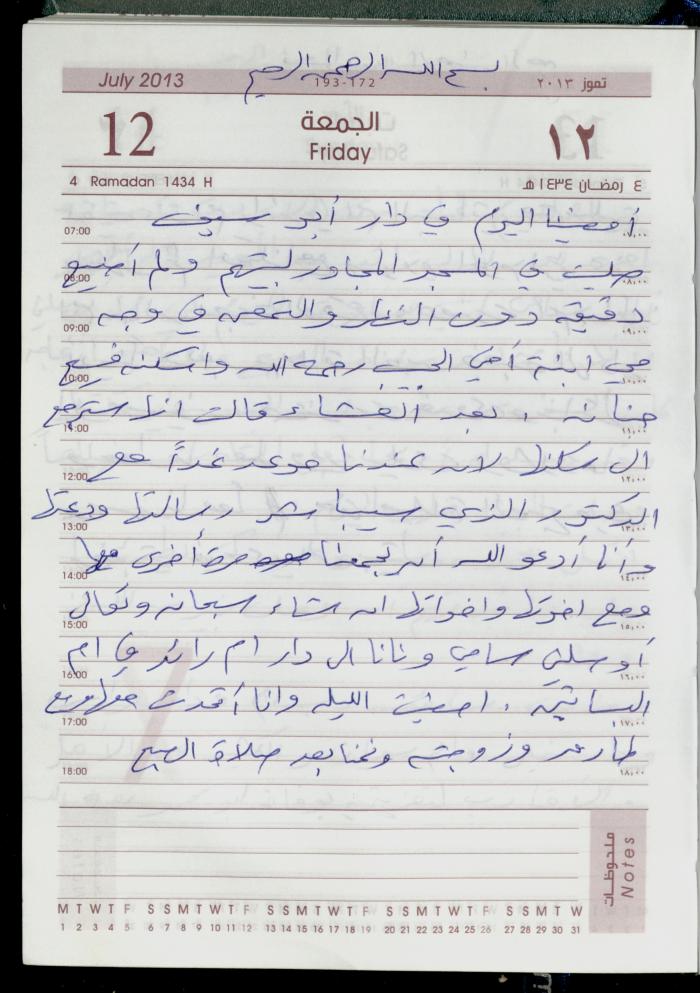 بسم الله الرحمن الرحيم
July 2013 193-172 تموز ٢٠١٣
12 الجمعة ١٢
Friday
4 Ramadan 1434 H ٤ رمضان ١٤٣٤ هـ
07:00 أمضينا اليوم في دار أبو سيف ٠٧,٠٠
08:00 صليت في المسجد المجاور لبيتهم ولم أضيع ٠٨,٠٠
09:00 دقيقة دون النظر والتمعن في وجه ٠٩,٠٠
10:00 مي ابنة أخي الحبيب رحمه الله واسكنه فسيح ١٠,٠٠
11:00 جنانه . بعد العشاء قالت انا سترجع ١١,٠٠
12:00 الى سكنها لانه عندنا موعد غداً مع ١٢,٠٠
13:00 الدكتور الذي سيباشر رسالتها ودعتها ١٣,٠٠
14:00 وأنا أدعو الله أن يجمعنا مرة أخرى معها ١٤,٠٠
15:00 ومع اخوتها واخواتها ان شاء سبحانه وتعالى ١٥,٠٠
16:00 أوصلني سامي ونانا الى دار ام رائد في ام ١٦,٠٠
17:00 البساتين . امضيت الليله وانا أتحدث مع ١٧,٠٠
18:00 طارق وزوجته ونمنا بعد صلاة الصبح ١٨,٠٠
ملحوظات
Notes
M T W T F S S M T W T F S S M T W T F S S M T W T F S S M T W
1 2 3 4 5 6 7 8 9 10 11 12 13 14 15 16 17 18 19 20 21 22 23 24 25 26 27 28 29 30 31